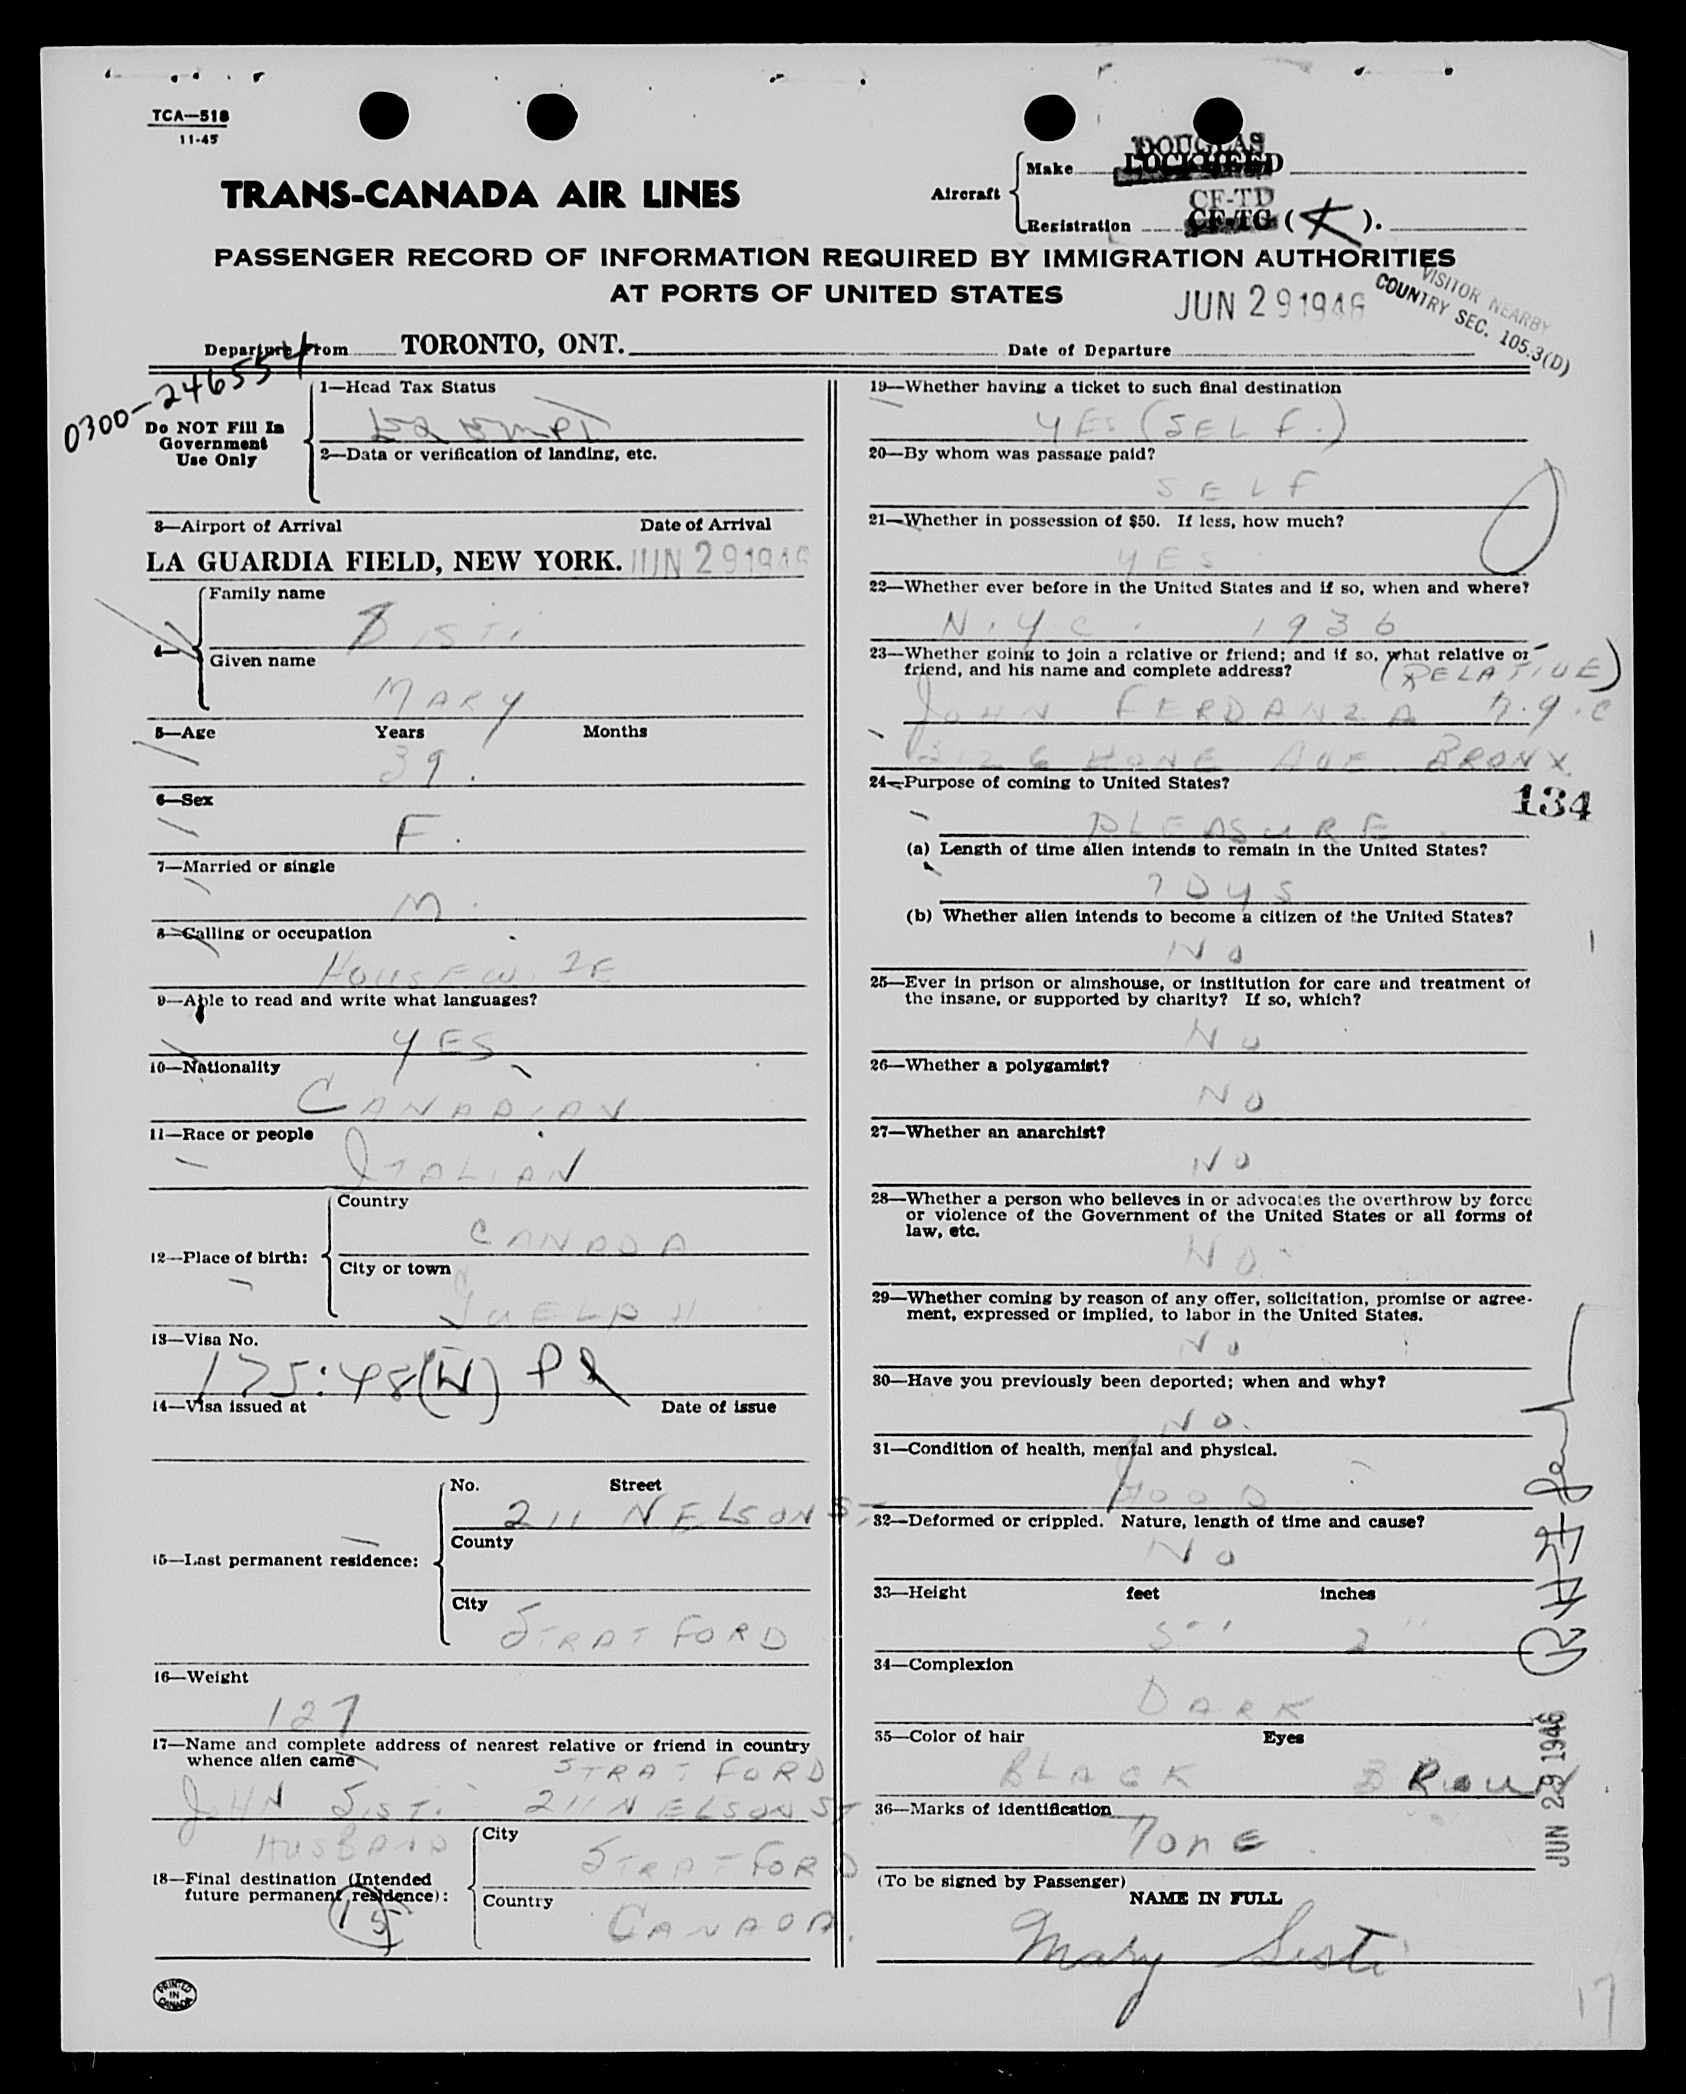 TCA—518
11-45
TRANS-CANADA AIR LINES
Aircraft
Make DOUGLAS
LOCKHEED
CF-TD
Registration CF-TG ( K ).
PASSENGER RECORD OF INFORMATION REQUIRED BY IMMIGRATION AUTHORITIES
AT PORTS OF UNITED STATES
JUN 29 1946
VISITOR NEARBY
COUNTRY SEC. 105.3(D)
Departure from TORONTO, ONT.
Date of Departure
0300-246554
Do NOT Fill In
Government
Use Only
1—Head Tax Status
2—Data or verification of landing, etc.
3—Airport of Arrival Date of Arrival
LA GUARDIA FIELD, NEW YORK. JUN 29 1946
4—
Family name
SISTI
Given name
MARY
5—Age Years Months
39.
6—Sex
F.
7—Married or single
M.
8—Calling or occupation
HOUSEWIFE
9—Able to read and write what languages?
YES
10—Nationality
CANADIAN
11—Race or people
ITALIAN
12—Place of birth:
Country
CANADA
City or town
GUELPH
13—Visa No.
175:48(W)
14—Visa issued at Date of issue
15—Last permanent residence:
No. Street
211 NELSON ST
County
City
STRATFORD
16—Weight
127
17—Name and complete address of nearest relative or friend in country
whence alien came
STRATFORD
JOHN SISTI 211 NELSON ST
HUSBAND
18—Final destination (Intended
future permanent residence):
15
City
STRATFORD
Country
CANADA.
PRINTED
IN
CANADA
19—Whether having a ticket to such final destination
YES (SELF.)
20—By whom was passage paid?
SELF
21—Whether in possession of $50. If less, how much?
YES
22—Whether ever before in the United States and if so, when and where?
N.Y.C. 1936
23—Whether going to join a relative or friend; and if so, what relative or
friend, and his name and complete address?
(RELATIVE)
JOHN FERDANZA N.Y.C
3126 HONE AVE BRONX
24—Purpose of coming to United States?
134
PLEASURE
(a) Length of time alien intends to remain in the United States?
7 DYS
(b) Whether alien intends to become a citizen of the United States?
NO
25—Ever in prison or almshouse, or institution for care and treatment of
the insane, or supported by charity? If so, which?
NO
26—Whether a polygamist?
NO
27—Whether an anarchist?
NO
28—Whether a person who believes in or advocates the overthrow by force
or violence of the Government of the United States or all forms of
law, etc.
NO
29—Whether coming by reason of any offer, solicitation, promise or agree-
ment, expressed or implied, to labor in the United States.
NO
30—Have you previously been deported; when and why?
NO.
31—Condition of health, mental and physical.
GOOD
32—Deformed or crippled. Nature, length of time and cause?
NO
33—Height feet inches
5' 2"
34—Complexion
DARK
35—Color of hair Eyes
BLACK BROWN
36—Marks of identification
None
(To be signed by Passenger)
NAME IN FULL
Mary Sisti
JUN 29 1946
17